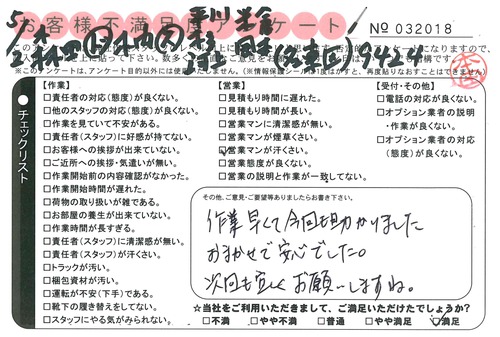 お客様不満足度アンケート
No 032018
【作業】
□責任者の対応(態度)が良くない。
□他のスタッフの対応(態度)が良くない。
□作業を見ていて不安がある。
□責任者(スタッフ)に好感が持てない。
□お客様への挨拶が出来ていない。
□ご近所への挨拶・気遣いが無い。
□作業開始前の内容確認がなかった。
□作業開始時間が遅れた。
□荷物の取り扱いが雑である。
□お部屋の養生が出来ていない。
□作業時間が長すぎる。
□責任者(スタッフ)に清潔感が無い。
□責任者(スタッフ)が汗くさい。
□トラックが汚い。
□梱包資材が汚い。
□運転が不安(下手)である。
□靴下の履き替えをしてない。
□スタッフにやる気がみられない。
【営業】
□見積もり時間に遅れた。
□見積もり時間が長い。
□営業マンに清潔感が無い。
□営業マンが煙草くさい。
□営業マンが汗くさい。
□営業態度が良くない。
□営業の説明と作業が一致してない。
【受付・その他】
□電話の対応が良くない。
□オプション業者の説明
・作業が良くない。
□オプション業者の対応
(態度)が良くない。
チェックリスト
その他、ご意見・ご要望等ありましたらお書き下さい。
作業早くて今回も助かりました
おまかせで安心でした。
次回も宜しくお願いしますね。
☆当社をご利用いただきまして、ご満足いただけたでしょうか?
□不満 □やや不満 □普通 □やや満足 ☑満足